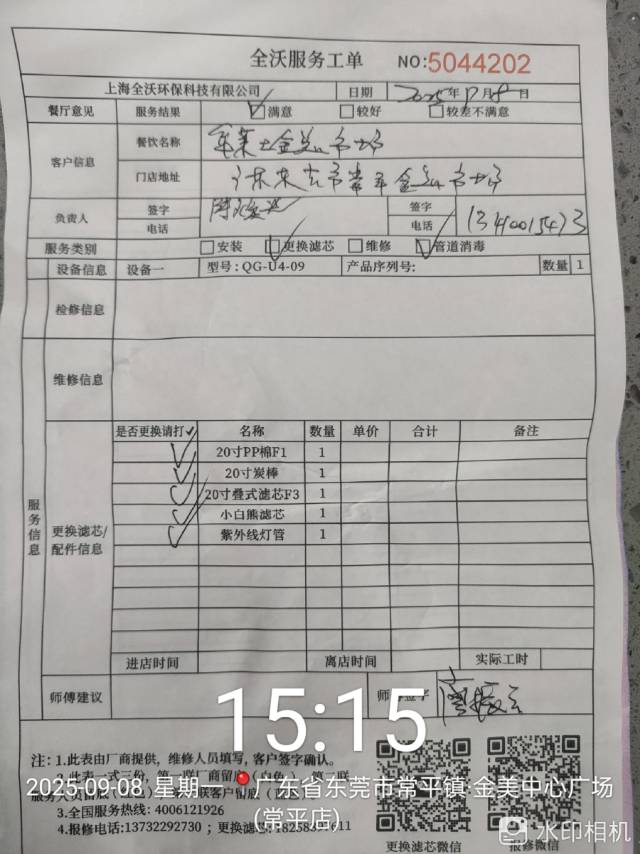 全沃服务工单 NO:5044202
上海全沃环保科技有限公司 日期 2025年 月8日
餐厅意见 服务结果 ☑满意 □较好 □较差不满意
客户信息 餐饮名称 金美
门店地址 常平金美
负责人 签字 签字
电话 电话
服务类别 □安装 ☑更换滤芯 □维修 ☑管道消毒
设备信息 设备一 型号:QG-U4-09 产品序列号: 数量 1
检修信息
维修信息
服务信息
更换滤芯/配件信息
是否更换请打✓ 名称 数量 单价 合计 备注
✓ 20寸PP棉F1 1
✓ 20寸炭棒 1
✓ 20寸叠式滤芯F3 1
✓ 小白熊滤芯 1
✓ 紫外线灯管 1
进店时间 离店时间 实际工时
师傅建议 师傅签字
15:15
注:1.此表由厂商提供，维修人员填写，客户签字确认。
2.此表一式三份，第一联厂商留底
服务人员留
2025-09-08 星期一 广东省东莞市常平镇·金美中心广场
(常平店)
3.全国服务热线: 4006121926
4.报修电话:13732292730 ; 更换滤芯
更换滤芯微信 报修微信
水印相机